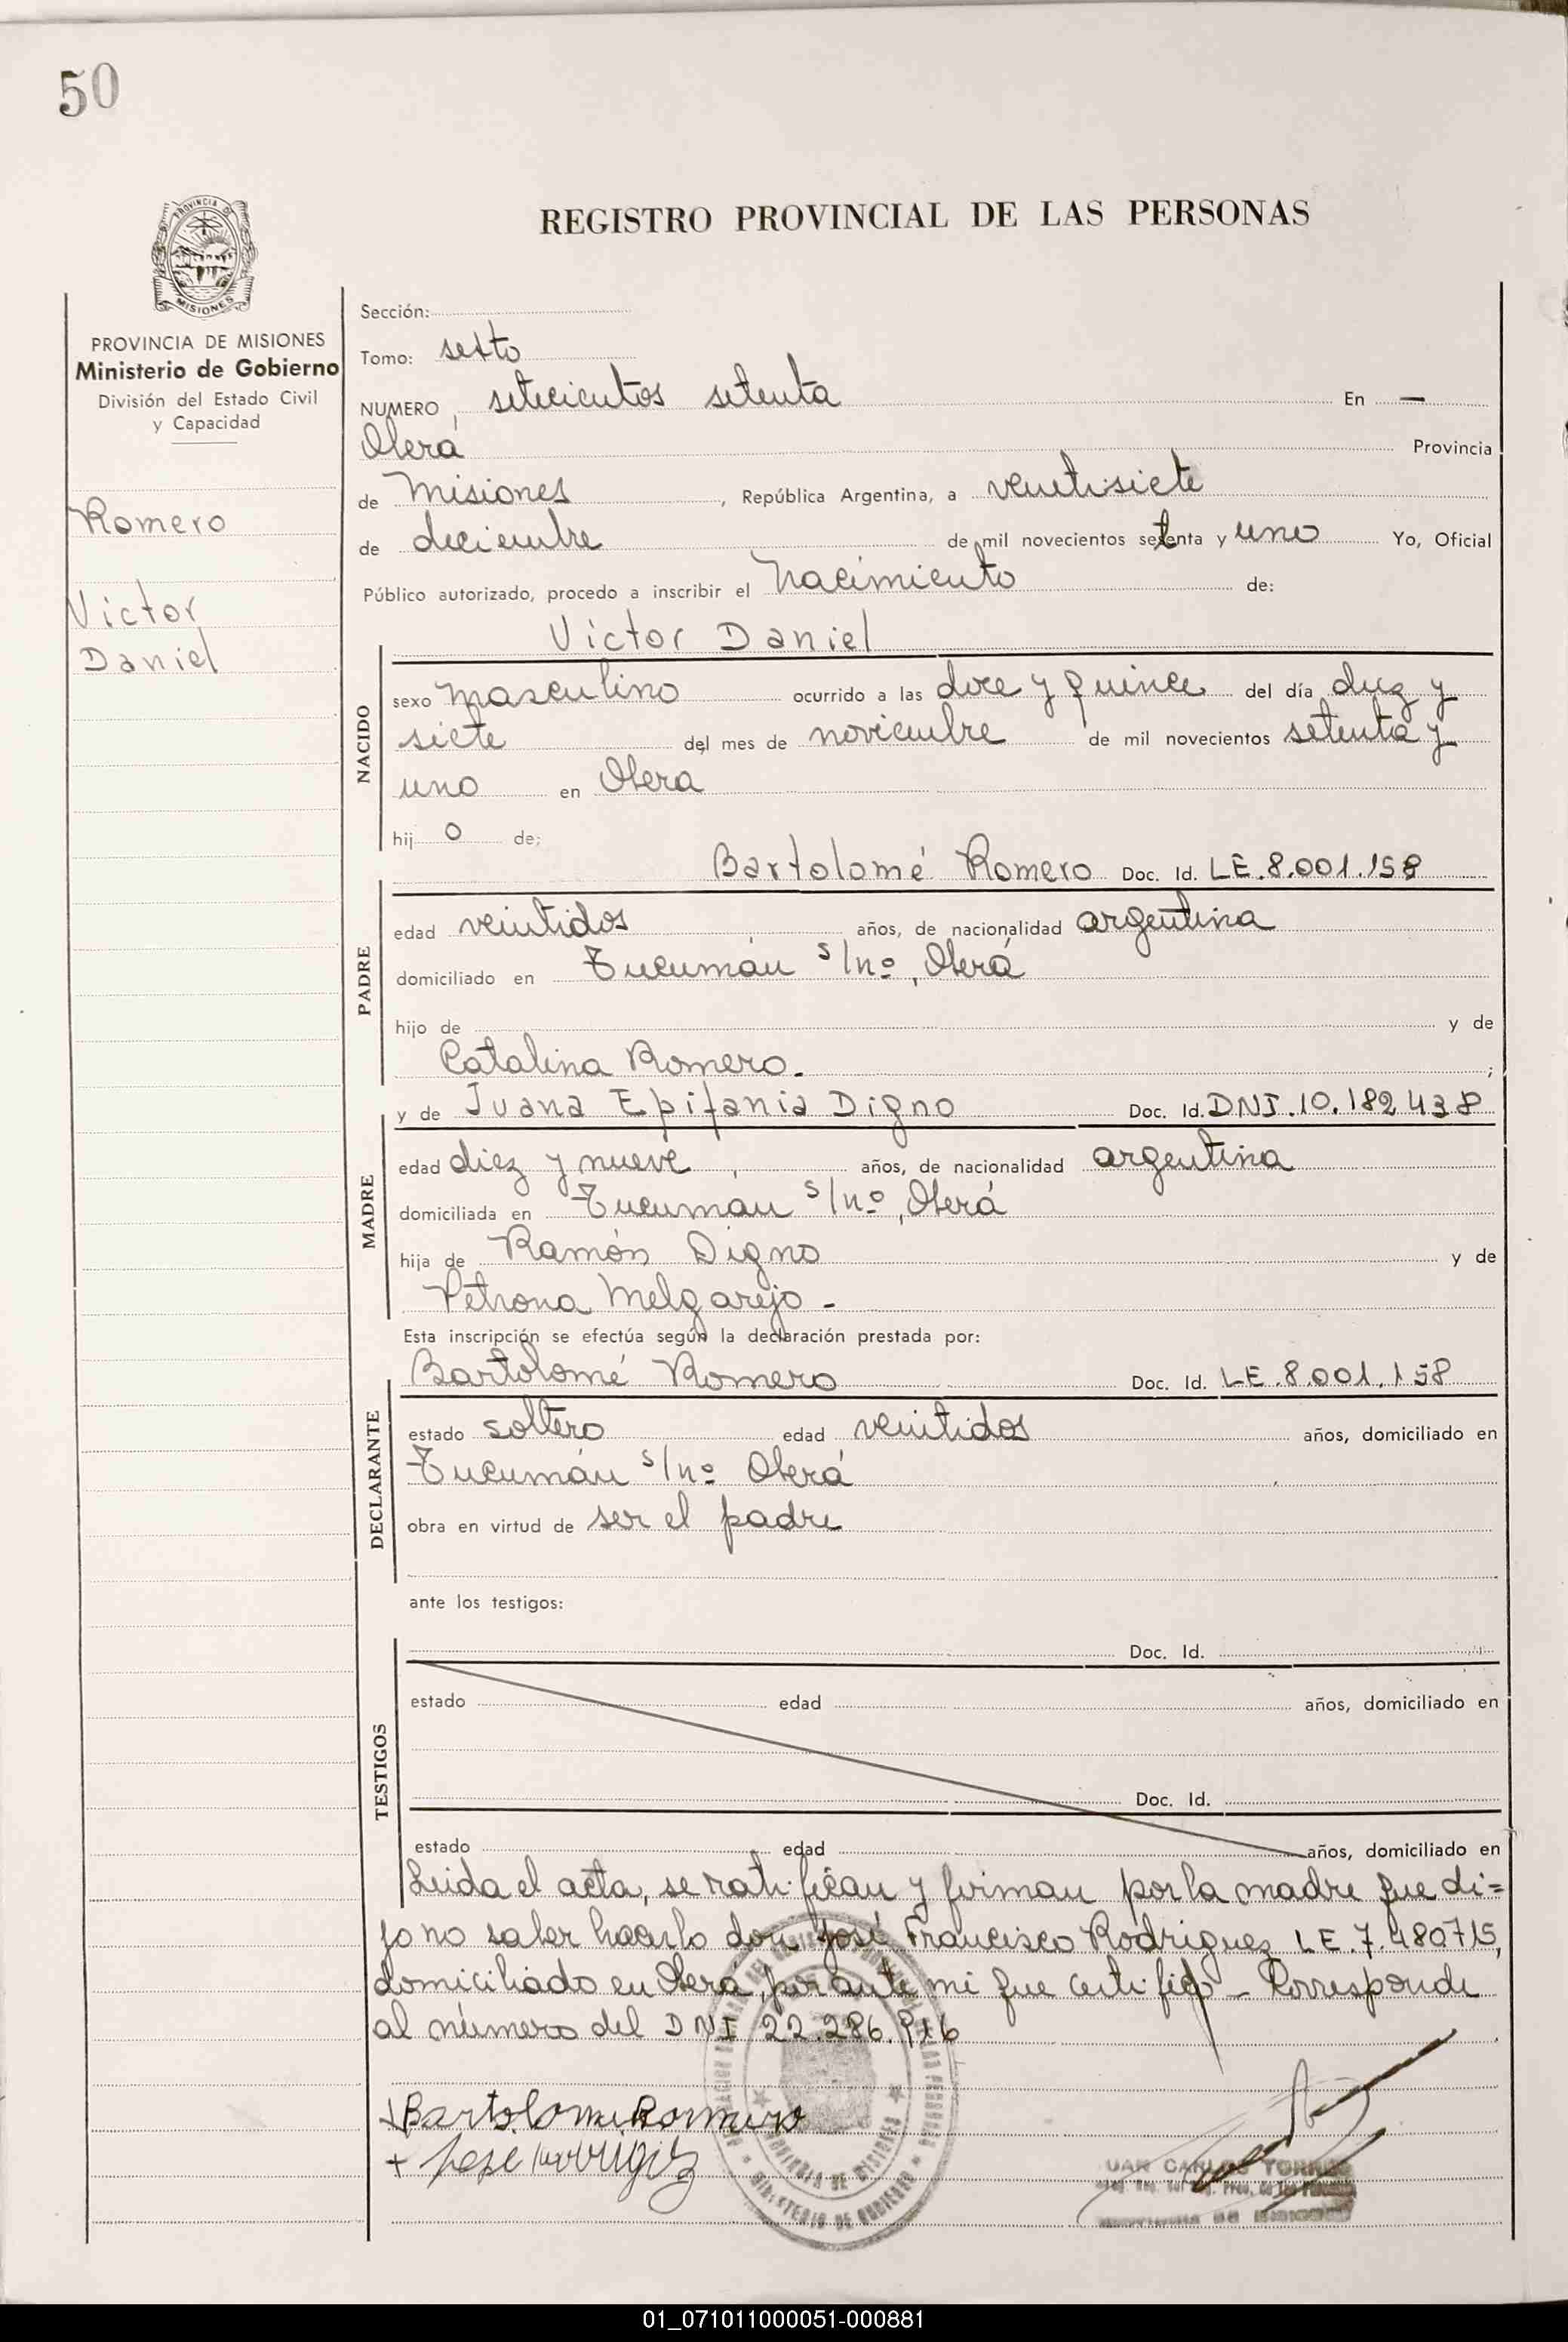 50
REGISTRO PROVINCIAL DE LAS PERSONAS
PROVINCIA DE MISIONES
PROVINCIA DE MISIONES
Ministerio de Gobierno
División del Estado Civil
y Capacidad
Romero
Victor
Daniel
Sección:
Tomo: sexto
NUMERO setecientos setenta En —
Oberá Provincia
de Misiones, República Argentina, a veintisiete
de diciembre de mil novecientos setenta y uno Yo, Oficial
Público autorizado, procedo a inscribir el Nacimiento de:
Victor Daniel
NACIDO
sexo masculino ocurrido a las doce y quince del día diez y
siete del mes de noviembre de mil novecientos setenta y
uno en Oberá
hij o de:
Bartolomé Romero Doc. Id. LE.8.001.158
PADRE
edad veintidos años, de nacionalidad argentina
domiciliado en Tucumán s/nº, Oberá
hijo de y de
Catalina Romero.- ;
y de Juana Epifania Digno Doc. Id. DNI.10.182438
MADRE
edad diez y nueve, años, de nacionalidad argentina
domiciliada en Tucumán s/nº, Oberá
hija de Ramón Digno y de
Petrona Melgarejo -
Esta inscripción se efectúa según la declaración prestada por:
Bartolomé Romero Doc. Id. LE.8.001.158
DECLARANTE
estado soltero edad veintidos años, domiciliado en
Tucumán s/nº Oberá
obra en virtud de ser el padre
ante los testigos:
Doc. Id.
TESTIGOS
estado edad años, domiciliado en
Doc. Id.
estado edad años, domiciliado en
Leida el acta, se ratifican y firman por la madre que di=
jo no saber hacerlo don José Francisco Rodriguez LE.7.480715,
domiciliado en Oberá, por ante mi que certifico - Corresponde
al número del DNI 22.286.916
+Bartolome Romero
+ Jose Rodrigez
PROVINCIA DE MISIONES
MINISTERIO DE GOBIERNO
UAN CARLOS TORRES
01_071011000051-000881